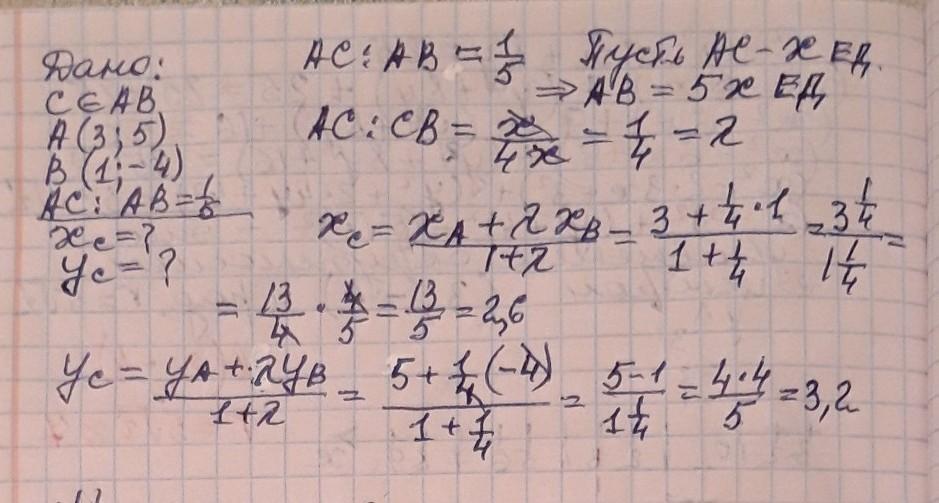 Дано:
C∈AB
A(3; 5)
B(1; -4)
AC: AB = 1/5
x_C = ?
y_C = ?
AC: AB = 1/5 Пусть AC - x ЕД.
⇒ AB = 5x ЕД
AC: CB = x/4x = 1/4 = λ
x_C = (x_A + λ x_B)/(1+λ) = (3 + 1/4 · 1)/(1 + 1/4) = (3 1/4)/(1 1/4) =
= 13/4 · 4/5 = 13/5 = 2,6
y_C = (y_A + λ y_B)/(1+λ) = (5 + 1/4 (-4))/(1 + 1/4) = (5-1)/(1 1/4) = (4·4)/5 = 3,2